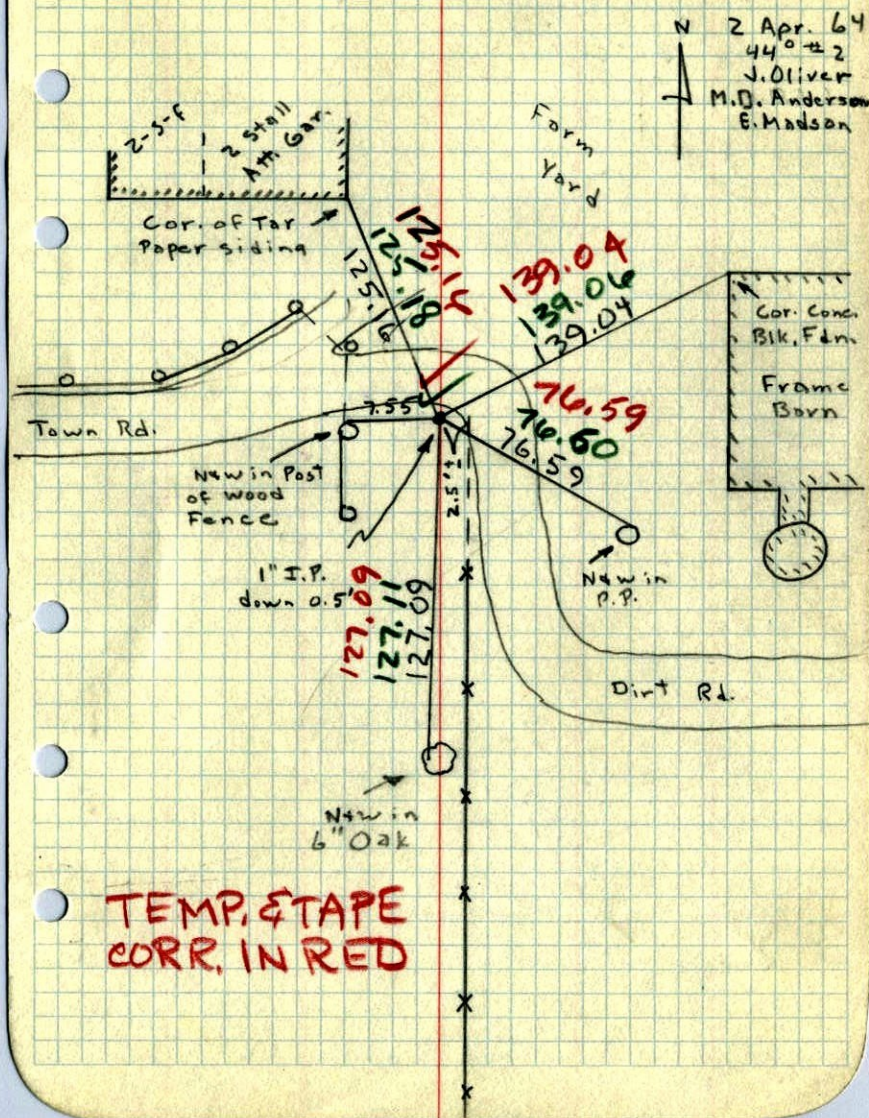 N
2 Apr. 64
44° #2
J. Oliver
M.D. Anderson
E. Madson
2-S-F
2 Stall
Att. Gar.
Farm
Yard
Cor. of Tar
Paper Siding
125.15
125.18
125.16
139.04
139.06
139.04
Cor. Conc.
Blk. Fdn.
Frame
Barn
76.59
76.60
76.59
7.55
Town Rd.
N&W in Post
of Wood
Fence
2.5'±
1" I.P.
down 0.5'
N&W in
P.P.
127.09
127.11
127.09
Dirt Rd.
N&W in
6" Oak
TEMP. & TAPE
CORR. IN RED